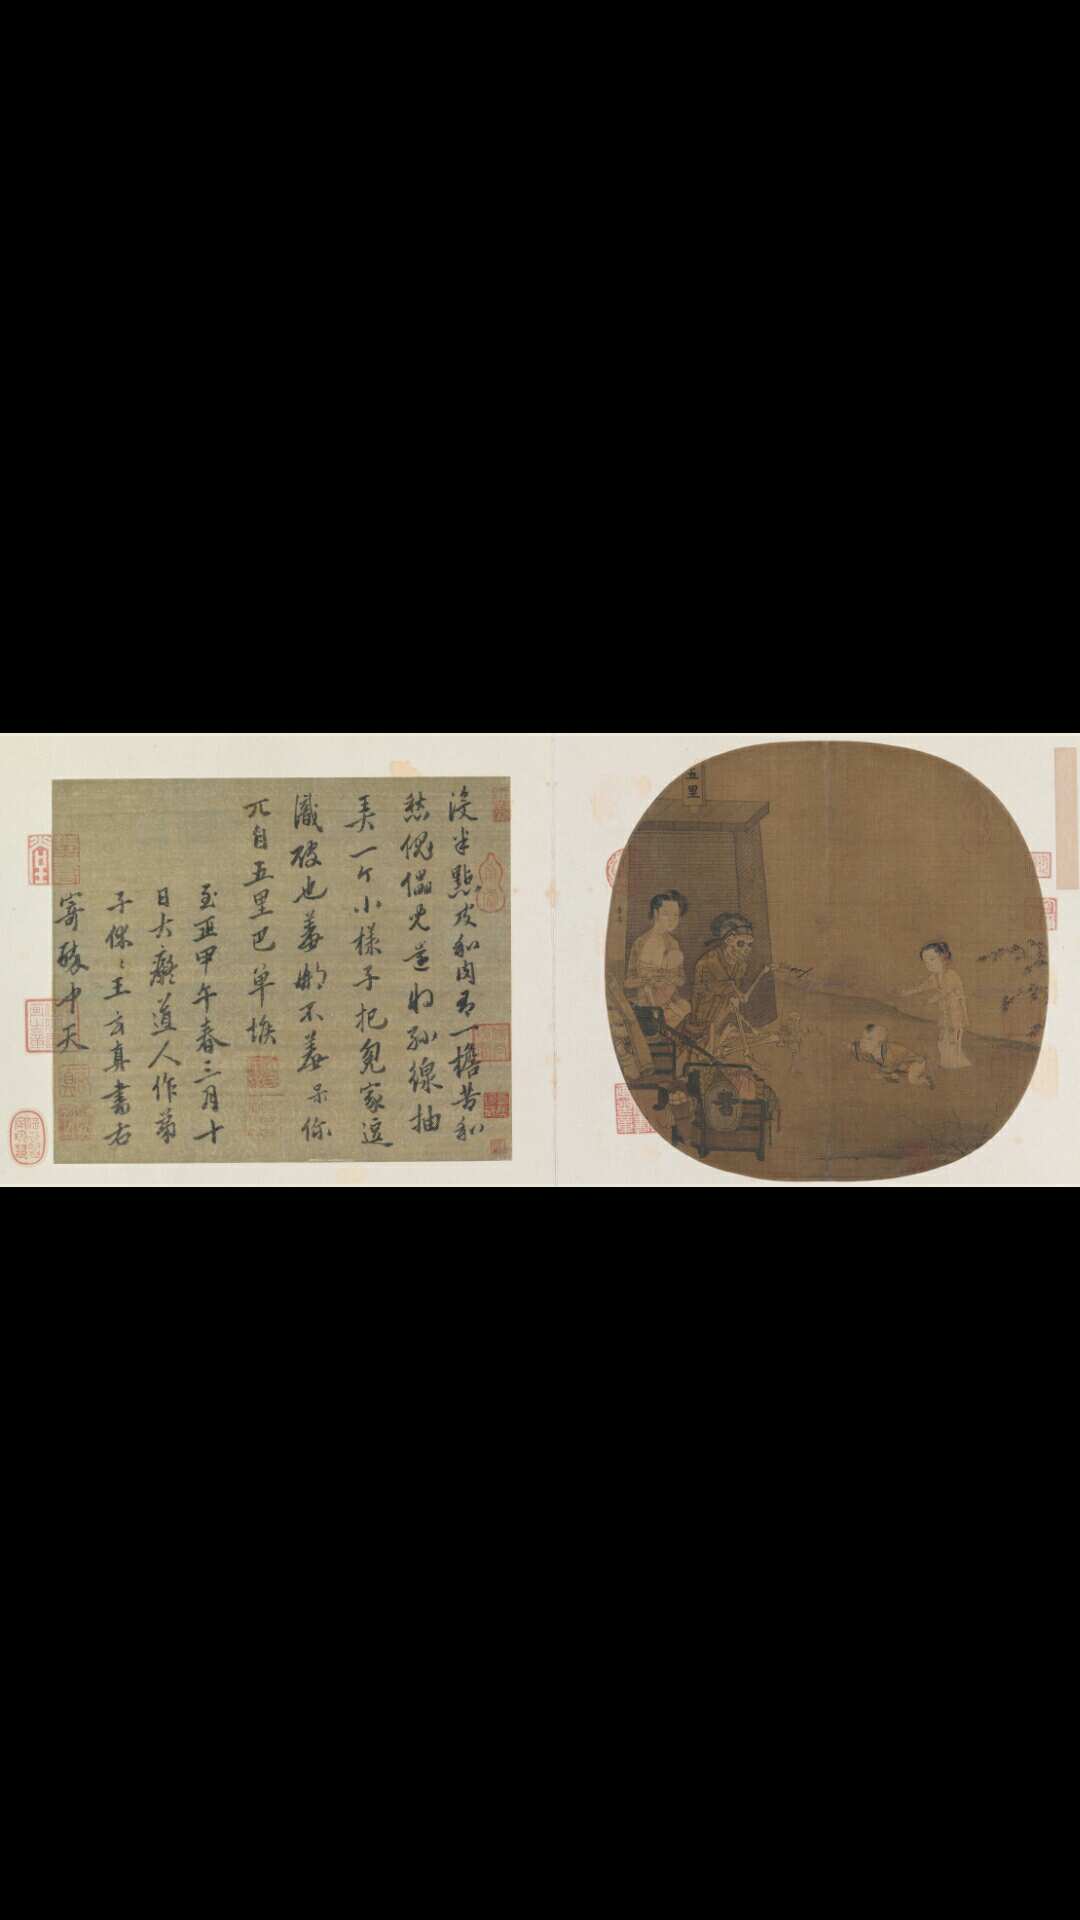 五里
没半點皮和肉有一擔苦和
愁傀儡兒還将絲線抽
弄一个小樣子把冤家逗
識破也羞那不羞呆你
兀自五里巴单堠
至正甲午春三月十
日大癡道人作弟
子休休王玄真書右
寄醉中天